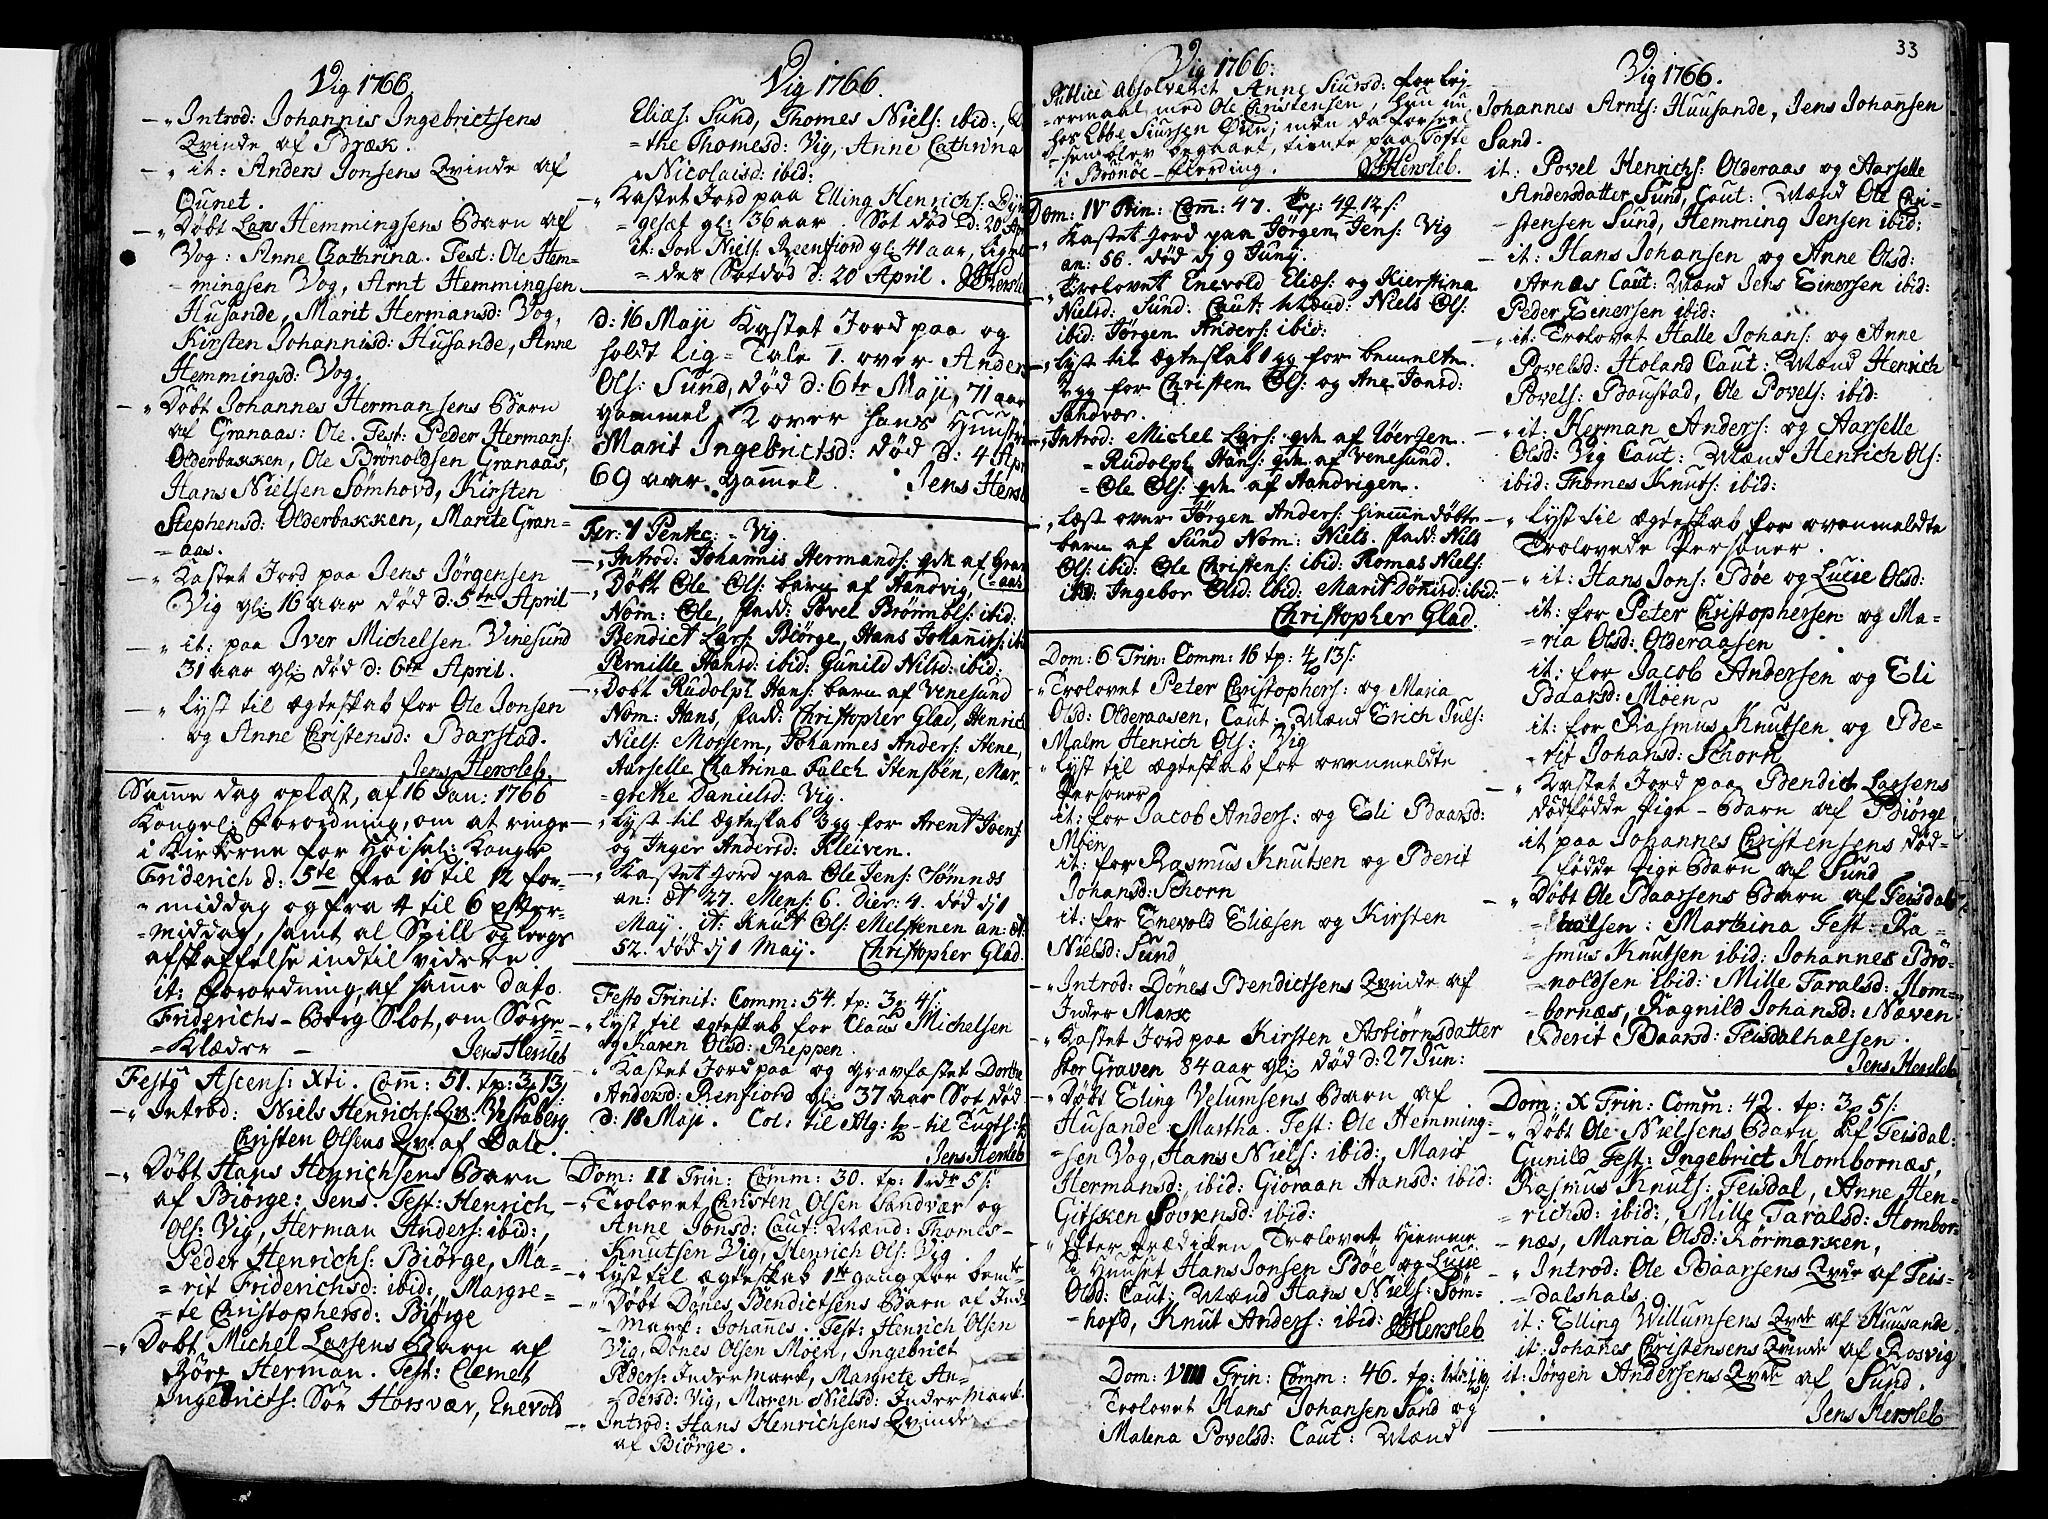 Vig 1766.
Introd: Johannis Ingebrictsens
Qvinde af Bræk.
it: Anders Jonsens Qvinde af
Qunet.
Døbt Lars Hemmingsens Barn af
Vog: Anne Cathrina. Test: Ole Hem=
=mingsen Vog, Arnt Hemmingsen
Husande, Marit Hermansd: Vog,
Kirsten Johannisd: Husande, Anne
Hemmingsd: Vog.
Døbt Johannes Hermansens Barn
af Granaas: Ole. Test: Peder Hermans:
Olderbakken, Ole Brønoldsen Granaas,
Hans Nielsen Sømhovd, Kirsten
Stephensd: Olderbakken, Marite Gran=
=aas.
Kastet Jord paa Jens Jørgensen
Vig gl: 16 aar død d: 5te April
it: paa Iver Michelsen Vinesund
31 aar gl: død d: 6te April.
Lyst til ægteskab for Ole Jonsen
og Anne Christensd: Barstad.
Jens Hersleb.
Samme dag oplæst, af 16 Jan: 1766
Kongel: Forordning, om at ringe
i Kirkerne for Høisal: Konge
Friderich d: 5te fra 10 til 12 for=
=middag og fra 4 til 6 efter=
=middag, samt al Spill og
afskaffelse indtil videre
it: Forordning, af samme dato
Friderichs-Berg Slot, om Sørge
=Klæder - Jens Hersleb
Festo Ascens: Xti. Comm: 51. tp: 3 13
Introd: Niels Henrichs: Qv:
Christen Olsens Qv: af Dale.
Døbt Hans Henrichsens Barn
af Biørge: Jens. Test: Henrich
Ols: Vig, Herman Anders: ibid:,
Peder Henrichs: Biørge, Ma=
=rit Friderichsd: ibid: Margre=
=te Christophersd: Biørge
Døbt Michel Larsens Barn af
Herman. Test: Clemet
Ingebricts: Søn Horsvær, Enevold
Vig 1766.
Eliæs: Sund, Thomes Niels: ibid:,
=the Thomesd: Vig, Anne Cathrina
Nicolaisd: ibid:
Kastet Jord paa Elling Henrichs:
=gesæt gl: 36 aar. Søt død d: 20
it: Jon Niels: Reenfiord gl: 41 aar,
=des Søtdød d: 20 April. JHersleb
d: 16 Maji Kastet Jord paa og
holdt Lig=Tale 1. over Anders
Ols: Sund, død d: 6te Maji, 71 aar
gammel, 2 over hans
Marit Ingebrictsd: død d: 4
69 aar gammel. Jens Hersleb
Fer: 1 Pentec: Vig.
Introd: Johannis Hermands: qde af Gran
aas
Døbt Ole Ols: barn af Handvig,
Nom: Ole, Fadd: Povel ibid:
Bendict Lars: Biørge, Hans Johannis:
Pernille Hansd: ibid: Gunild Nilsd: ibid:
Døbt Rudolph Hans: barn af Venesund
Nom: Hans, Fadd: Christopher Glad, Henrich
Niels: Morsem, Johannes Anders: Stene,
Aarselle Chatrina Falch Stensøen, Mar=
=grethe Danielsd: Vig.
Lyst til ægteskab 3 gg for Arent Joens:
og Inger Andersd: Kleiven.
Kastet jord paa Ole Jens: Sømnæs
an: æt 27. Mens: 6. Dier: 4. død d: 1
May. it: Knut Ols: Melstenen an: æt:
52. død d: 1 May. Christopher Glad.
Festo Trinit: Comm: 54. tp: 3 4 s:
Lyst til ægteskab for Claus Michelsen
og Karen Olsd: Reppen.
Kastet Jord paa og gravfæstet
Andersd: Renfiord gl: 37 aar Søt død
d: 18 Maji. Col: til Alg: til Tugts:
Jens Hersleb
Dom: II Trin: Comm: 30. tp: 1 5 s:
Trolovet Christen Olsen Sandvær og
Anne Jonsd: Caut: Mænd: Thomes
Knutsen Vig, Henrich Ols: Vig
Lyst til ægteskab 1te gang for
Døbt Dønes Bendictsens Barn af Inder
=mark: Johannes. Test: Henrich Olsen
Vig, Dønes Olsen Moen, Ingebrict
Peders: Indermark, Margrete An=
=dersd: Vig, Maren Nielsd: Indermark.
Introd: Hans Henrichsens Qvinde
af Biørge.
33
Vig 1766:
Publice absolveret Anne Siursd: for
=ermaal med Ole Christensen, hun
hos Ebbe Siursen men da forseel
=sen blev begaaet, tiente paa Tofte
i Brønøe-fierding. JHersleb.
Dom: IV Trin: Comm: 47. tp: 4 12 s:
Kastet jord paa Jørgen Jens: Vig
an: 56. død d: 9 Juny.
Trolovet Enevold Eliæs: og Kierstina
Nielsd: Sund: Caut: Mænd: Niels Ols:
ibid: Jørgen Anders: ibid:
Lyst til ægteskab 1 gg for bemelte.
2 gg for Christen Ols: og Ane Jonsd:
Sandvær.
Introd: Michel Lars: qde af
=Rudolph Hans: qde af Venesund.
=Ole Ols: qde af Handvigen.
Læst over Jørgen Anders: hiemmedøbte
barn af Sund Nom: Niels. Fadd: Nils
Ols: ibid: Ole Christens: ibid: Tomas Niels:
ibid: Ingebor Olsd: ibid: Marit Dønisd: ibid:
Christopher Glad.
Dom: 6 Trin: Comm: 16 tp: 4 13 s:
Trolovet Peter Christophers: og Maria
Olsd: Olderaasen, Caut: Mænd Erich Juls:
Malm Henrich Ols: Vig
Lyst til ægteskab for ovenmeldte
Personer
it: for Jacob Anders: og Eli Baarsd:
Moen
it: for Rasmus Knutsen og Berit
Johansd: Schorn
it: for Enevold Eliæsen og Kirsten
Nielsd: Sund
Introd: Dønes Bendictsens Qvinde af
Inder Mark
Kastet Jord paa Kirsten Asbiørnsdatter
Stor Graven 84 aar gl: død d: 27 Jun:
Døbt Eling Velumsens Barn af
Husande Martha. Test: Ole Hemming=
=sen Vog, Hans Niels: ibid: Marit
Hermansd: ibid: Gioraan Hansd: ibid:
Gitsken ibid:
Efter Prædiken Trolovet Hiemme
i Huuset Hans Jonsen Bøe og Lucie
Olsd: Caut: Mænd Hans Niels: Søm=
=hofd, Knut Anders: ibid: JHersleb
Dom: VIII Trin: Comm: 46. tp:
Trolovet Hans Johansen Sand og
Malena Povelsd: Caut: Mænd
Vig 1766.
Johannes Arnts: Huusande, Jens Johansen
Sand.
it: Povel Henrichs: Olderaas og Aarselle
Andersdatter Sund, Caut: Mænd Ole Chri=
=stensen Sund, Hemming Jensen ibid:
it: Hans Johansen og Anne Olsd:
Arnæs Caut: Mænd Jens Einersen ibid:
Peder Einersen ibid:
it: Trolovet Halle Johans: og Anne
Povelsd: Holand Caut: Mænd Henrich
Povels: Baustad, Ole Povels: ibid:
it: Herman Anders: og Aarselle
Olsd: Vig Caut: Mænd Henrich Ols:
ibid: Thomes Knuts: ibid:
Lyst til ægteskab for ovenmeldte
Trolovede Personer.
it: Hans Jons: Bøe og Lucie Olsd:
it: for Peter Christophersen og Ma=
=ria Olsd: Olderaasen
it: for Jacob Andersen og Eli
Baarsd: Moen
it: for Rasmus Knutsen og Be=
=rit Johansd: Schorn
Kastet Jord paa Bendict Larsens
dødfødde Pige-Barn af Biørge
it paa Johannes Christensens død=
=fødde Pige Barn af Sund
Døbt Ole Baarsens Barn af Feisdal
=halsen: Marthina Test: Ra=
=smus Knutsen ibid: Johannes Brø=
=noldsen ibid: Mille Taralsd: Hom=
=bornæs, Ragnild Johansd: Næven
Berit Baarsd: Feisdalhalsen.
Jens Hersleb
Dom: X Trin: Comm: 42. tp: 3 5 s:
Døbt Ole Nielsens Barn af Feisdal:
Gunild Test: Ingebrict Hombornæs,
Rasmus Knuts: Feisdal, Anne Hen=
=richsd: ibid:, Mille Taralsd: Hombor=
=næs, Maria Olsd: Kørmarken,
Introd: Ole Baarsens Qvde af Feis=
=dalshals:
it: Elling Willumsens Qvde af Huusande
it: Johanes Christensens Qvinde af Rosvig
it: Jørgen Andersens Qvde af Sund.
Jens Hersleb